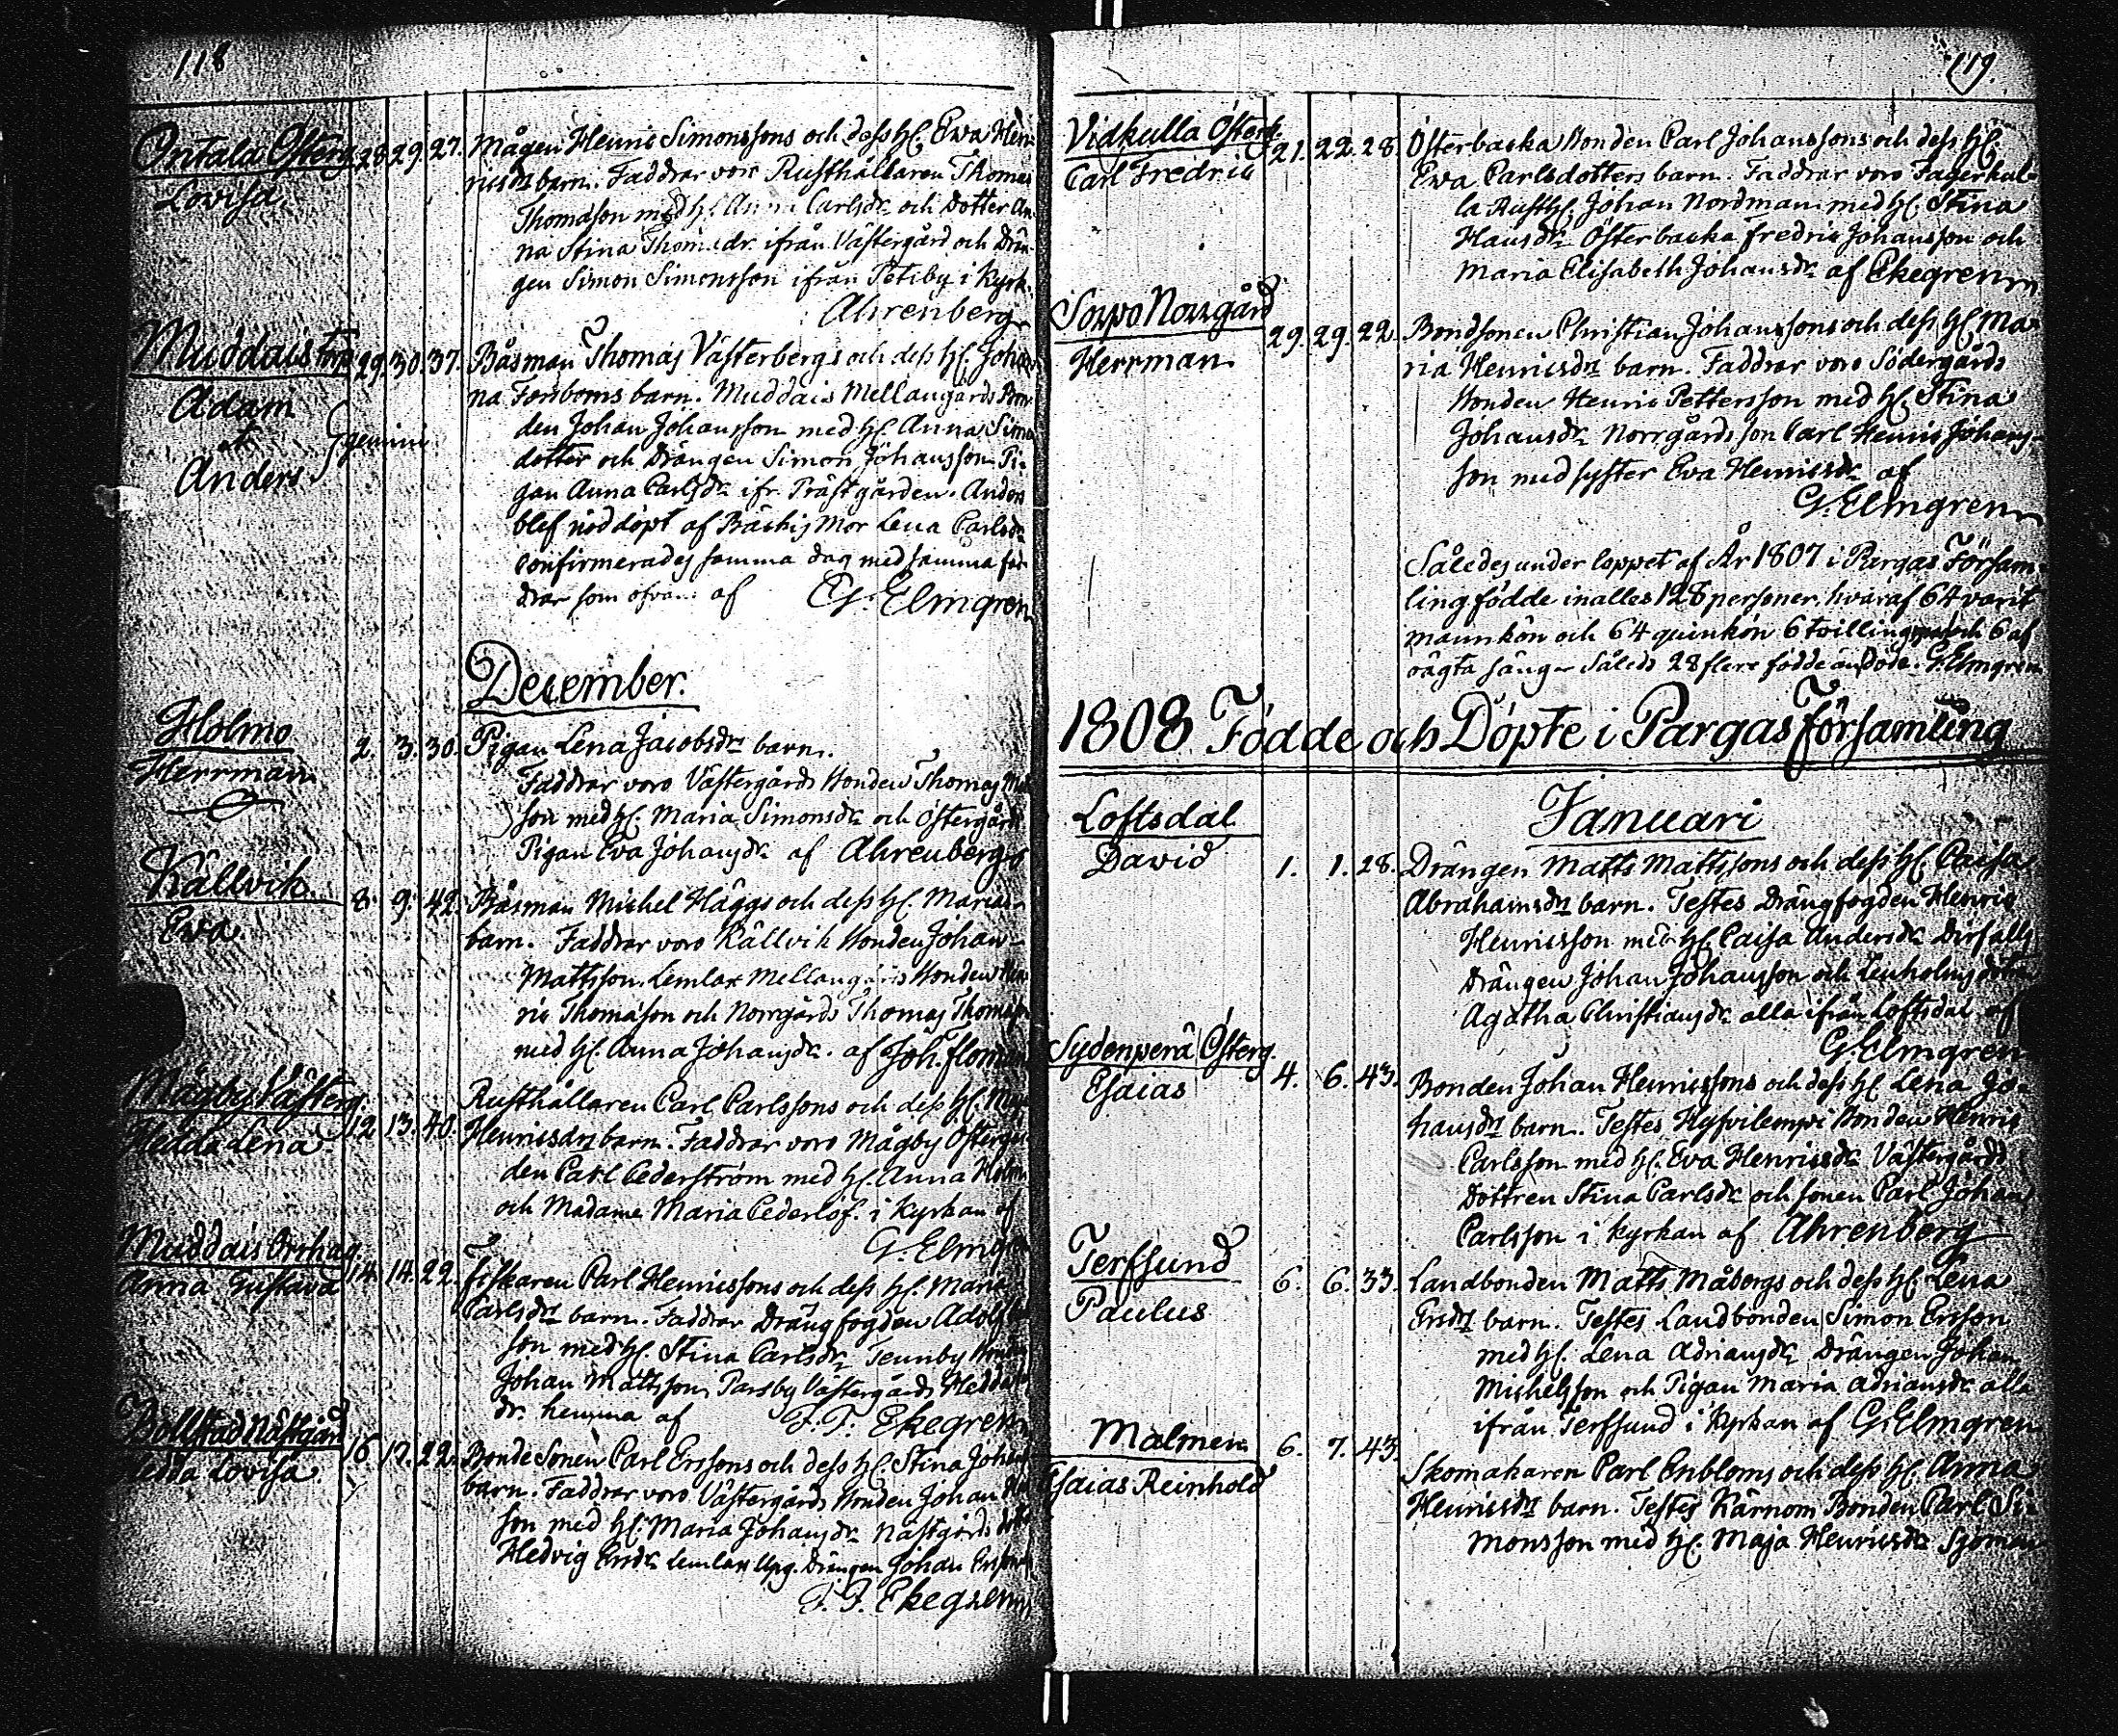 118
Ontala Österg. 28. 29. 27. Mågen Henric Simonssons och dess H. Ewa Hen-
Lovisa. ricsdrs barn. Faddrar voro Rusthållaren Thomas
Thomasson med H. Anna Carlsdr och Dotter An-
na Stina Thomsdr ifrån Västergård och Drän-
gen Simon Simonsson ifrån Petiby i Kyrk.
Ahrenberg
Muddais torp 29. 30. 37. Båsman Thomas Västerbergs och dess H. Johan-
Adam na Forsboms barn. Muddais Mellangårds Bon-
et gemini den Johan Johansson med H. Anna Sims
Anders dotter och Drängen Simon Johansson Pi-
gan Anna Carlsdr ifr. Prästgården. Anders
blef nöddöpt af Mor Lena Carlsdr
confirmerades samma dag med samma fad-
drar som ofvan af G. Elmgren
December.
Holmo 2. 3. 30. Pigan Lena Jacobsdrs barn.
Herrman Faddrar voro Västergårds Bonden Thomas
son med H. Maria Simonsdr och Östergårds
Pigan Eva Johansdr af Ahrenberg
Källvik. 8. 9. 42. Båsman Michel Häggs och dess H. Marias
Ewa barn. Faddrar voro Källvik Bonden Johan
Mattsson. Lemlax Mellangårds Bonden Hen-
ric Thomasson och Norrgårds Thomas Thomass
med H. Anna Johansdr. af Joh. Floman
Mågby Västerg. 12. 13. 40. Rusthållaren Carl Carlssons och dess H. Maja
Hedda Lena. Henricsdrs barn. Faddrar voro Mågby Östergår
den Carl Cederström med H. Anna Holm
och Madame Maria Cederlöf. i Kyrkan af
G. Elmgren
Muddais Orrhag. 14. 14. 22. Fiskaren Carl Henricssons och dess H. Maria
Anna Gustava Carlsdrs barn. Faddrar Drängfogden Adolf
son med H. Stina Carlsdr Tennby Bonden
Johan Mattsson Parsby Västergårds Hedda
dr. hemma af F. F. Ekegren
Bollstad Nästgård 16. 17. 22. Bonde Sonen Carl Erssons och dess H. Stina Johans
Hedda Lovisa. barn. Faddrar voro Västergårds Bonden Johan
son med H. Maria Johansdr Nästgårds
Hedvig Ersdr Lemlax Upg. Drängen Johan Ersson
F. F. Ekegren
119.
Vidkulla Österg. 21. 22. 28. Österbacka Bonden Carl Johanssons och dess H.
Carl Fredric Ewa Carlsdotters barn. Faddrar voro Fagerkul-
la Rusth. Johan Nordman med H. Stina
Hansdr Österbacka Fredric Johansson och
Maria Elisabeth Johansdr af Ekegren
Sorpo Norrgård 29. 29. 22. Bondsonen Christian Johanssons och dess H. Ma-
Herrman ria Henricsdrs barn. Faddrar voro Södergårds
Bonden Henric Pettersson med H. Stina
Johansdr Norrgårds son Carl Henric Johans-
son med syster Eva Henricsdr af
G. Elmgren
Således under loppet af År 1807 i Pargas Försam-
ling födde inalles 128 personer, hvaraf 64 varit
mannkön och 64 quinkön 6 tvillingpar och 6 af
oägta säng - Således 28 flere födde än döde. G. Elmgren
1808 Födde och Döpte i Pargas församling
Januari
Loftsdal
David 1. 1. 28. Drängen Matts Mattssons och dess H. Caisa
Abrahamsdrs barn. Testes Drängfogden Henric
Henricsson med H. Caisa Andersdr Dirfalls
Drängen Johan Johansson och Lenholms dotter
Agatha Christiansdr alla ifrån Loftsdal af
G. Elmgren
Sydenperä Österg. 4. 6. 43. Bonden Johan Henricssons och dess H. Lena Jo-
Esaias hansdrs barn. Testes Hyfvilempi Bonden Henric
Carlsson med H. Eva Henricsdr Västergårds
Dottren Stina Carlsdr och sonen Carl Johan
Carlsson i kyrkan af Ahrenberg
Terfsund 6. 6. 33. Landbonden Matts Måbergs och dess H. Lena
Paulus Ersdrs barn. Testes Landbonden Simon Ersson
med H. Lena Adriansdr Drängen Johan
Michelsson och Pigan Maria Adriansdr alla
ifrån Terfsund i Kyrkan af G. Elmgren
Malmen 6. 7. 43. Skomakaren Carl Enbloms och dess H. Anna
Esaias Reinhold Henricsdrs barn. Testes Kärnom Bonden Carl Si-
monsson med H. Maja Henricsdr Sjöman